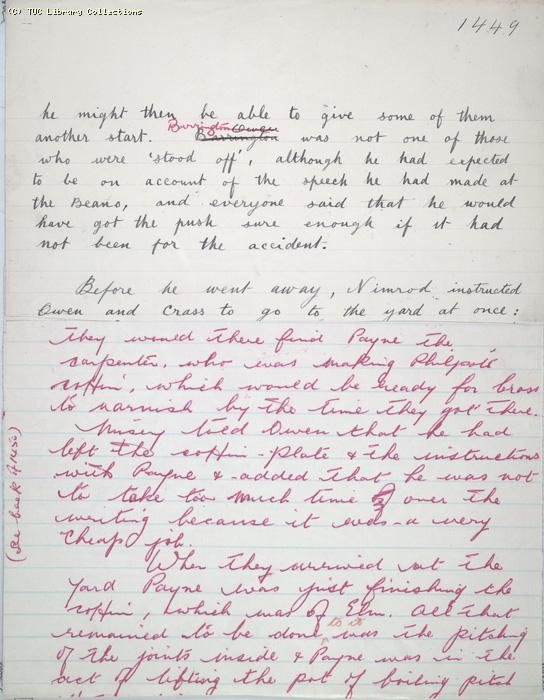 (C) TUC Library Collections
1449
he might then be able to give some of them
another start. Barrington Owen Barrington was not one of those
who were 'stood off', although he had expected
to be on account of the speech he had made at
the Beano, and everyone said that he would
have got the push sure enough if it had
not been for the accident.
Before he went away, Nimrod instructed
Owen and Crass to go to the yard at once:
they would there find Payne the
carpenter, who was making Philpot's
coffin, which would be ready for Crass
to varnish by the time they got there.
Misery told Owen that he had
left the coffin-plate & the instructions
with Payne & added that he was not
to take too much time over the
writing because it was a very
cheap job.
(See back of 1450)
When they arrived at the
yard Payne was just finishing the
coffin, which was of Elm. All that
remained to be done to it was the pitching
of the joints inside & Payne was in the
act of lifting the pot of boiling pitch